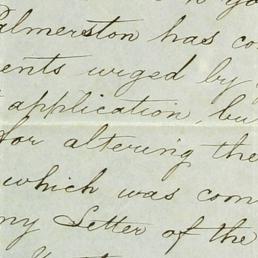 Palmerston has co
ents urged by
application, bu
for altering the
which was com
my Letter of the